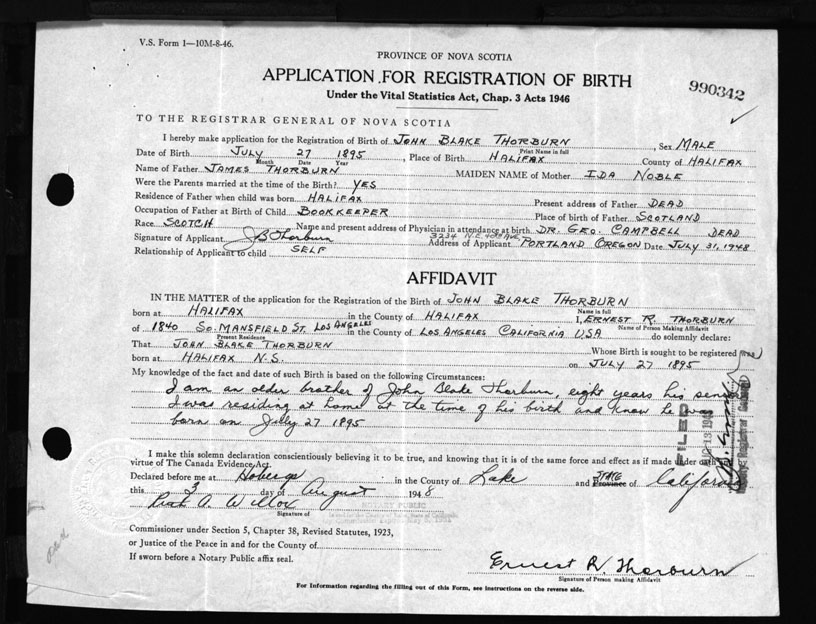 V.S. Form 1—10M-8-46.
PROVINCE OF NOVA SCOTIA
APPLICATION FOR REGISTRATION OF BIRTH
Under the Vital Statistics Act, Chap. 3 Acts 1946
990342
TO THE REGISTRAR GENERAL OF NOVA SCOTIA
I hereby make application for the Registration of Birth of JOHN BLAKE THORBURN, Sex MALE
Print Name in full
Date of Birth JULY 27 1895, Place of Birth HALIFAX County of HALIFAX
Month Date Year
Name of Father JAMES THORBURN MAIDEN NAME of Mother IDA NOBLE
Were the Parents married at the time of the Birth? YES
Residence of Father when child was born HALIFAX Present address of Father DEAD
Occupation of Father at Birth of Child BOOKKEEPER Place of birth of Father SCOTLAND
Race SCOTCH Name and present address of Physician in attendance at birth DR. GEO. CAMPBELL DEAD
3234 N.E. 40TH AVE
Signature of Applicant J B Thorburn Address of Applicant PORTLAND OREGON Date JULY 31, 1948
Relationship of Applicant to child SELF
AFFIDAVIT
IN THE MATTER of the application for the Registration of Birth of JOHN BLAKE THORBURN
Name in full
born at HALIFAX in the County of HALIFAX I, ERNEST R. THORBURN
Name of Person Making Affidavit
of 1840 SO. MANSFIELD ST. LOS ANGELES in the County of LOS ANGELES CALIFORNIA USA do solemnly declare:
Present Residence
That JOHN BLAKE THORBURN Whose Birth is sought to be registered (was)
born at HALIFAX N.S. on JULY 27 1895
My knowledge of the fact and date of such Birth is based on the following Circumstances:
I am an older brother of John Blake Thorburn, eight years his senior
I was residing at home at the time of his birth and know he was
born on July 27 1895
FILED
I make this solemn declaration conscientiously believing it to be true, and knowing that it is of the same force and effect as if made under oath
virtue of The Canada Evidence Act.
Declared before me at in the County of Lake and STATE Province of California
this 3 day of August 1948
Signature of
NOTARY PUBLIC
Commissioner under Section 5, Chapter 38, Revised Statutes, 1923,
or Justice of the Peace in and for the County of
If sworn before a Notary Public affix seal.
Ernest R. Thorburn
Signature of Person making Affidavit
For Information regarding the filling out of this Form, see instructions on the reverse side.